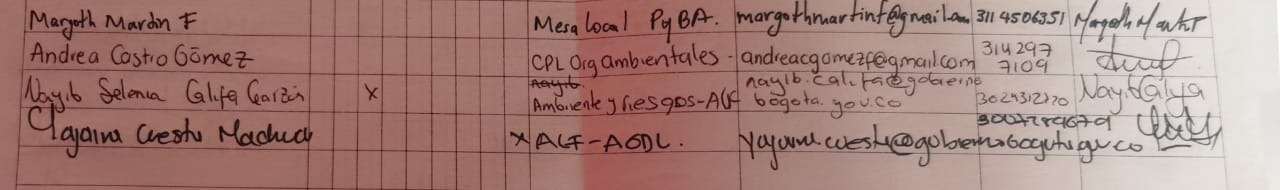 Margoth Martín F Mesa Local PyBA. margothmartinf@gmail.com 311 4506351 Margoth Martín F
Andrea Castro Gómez CPL Org ambientales - andreacgomezf@gmail.com 314297 7109
Nayib Selenia Califa Garzón X Nayib Ambiente y riesgos-ALF nayib.califa@gobierno bogota.gov.co 3024312770 Nayib Califa
Yajaira Cuesta X ALF-AGDL. yajaira.cuesta@gobiernobogota.gv.co 3007289679